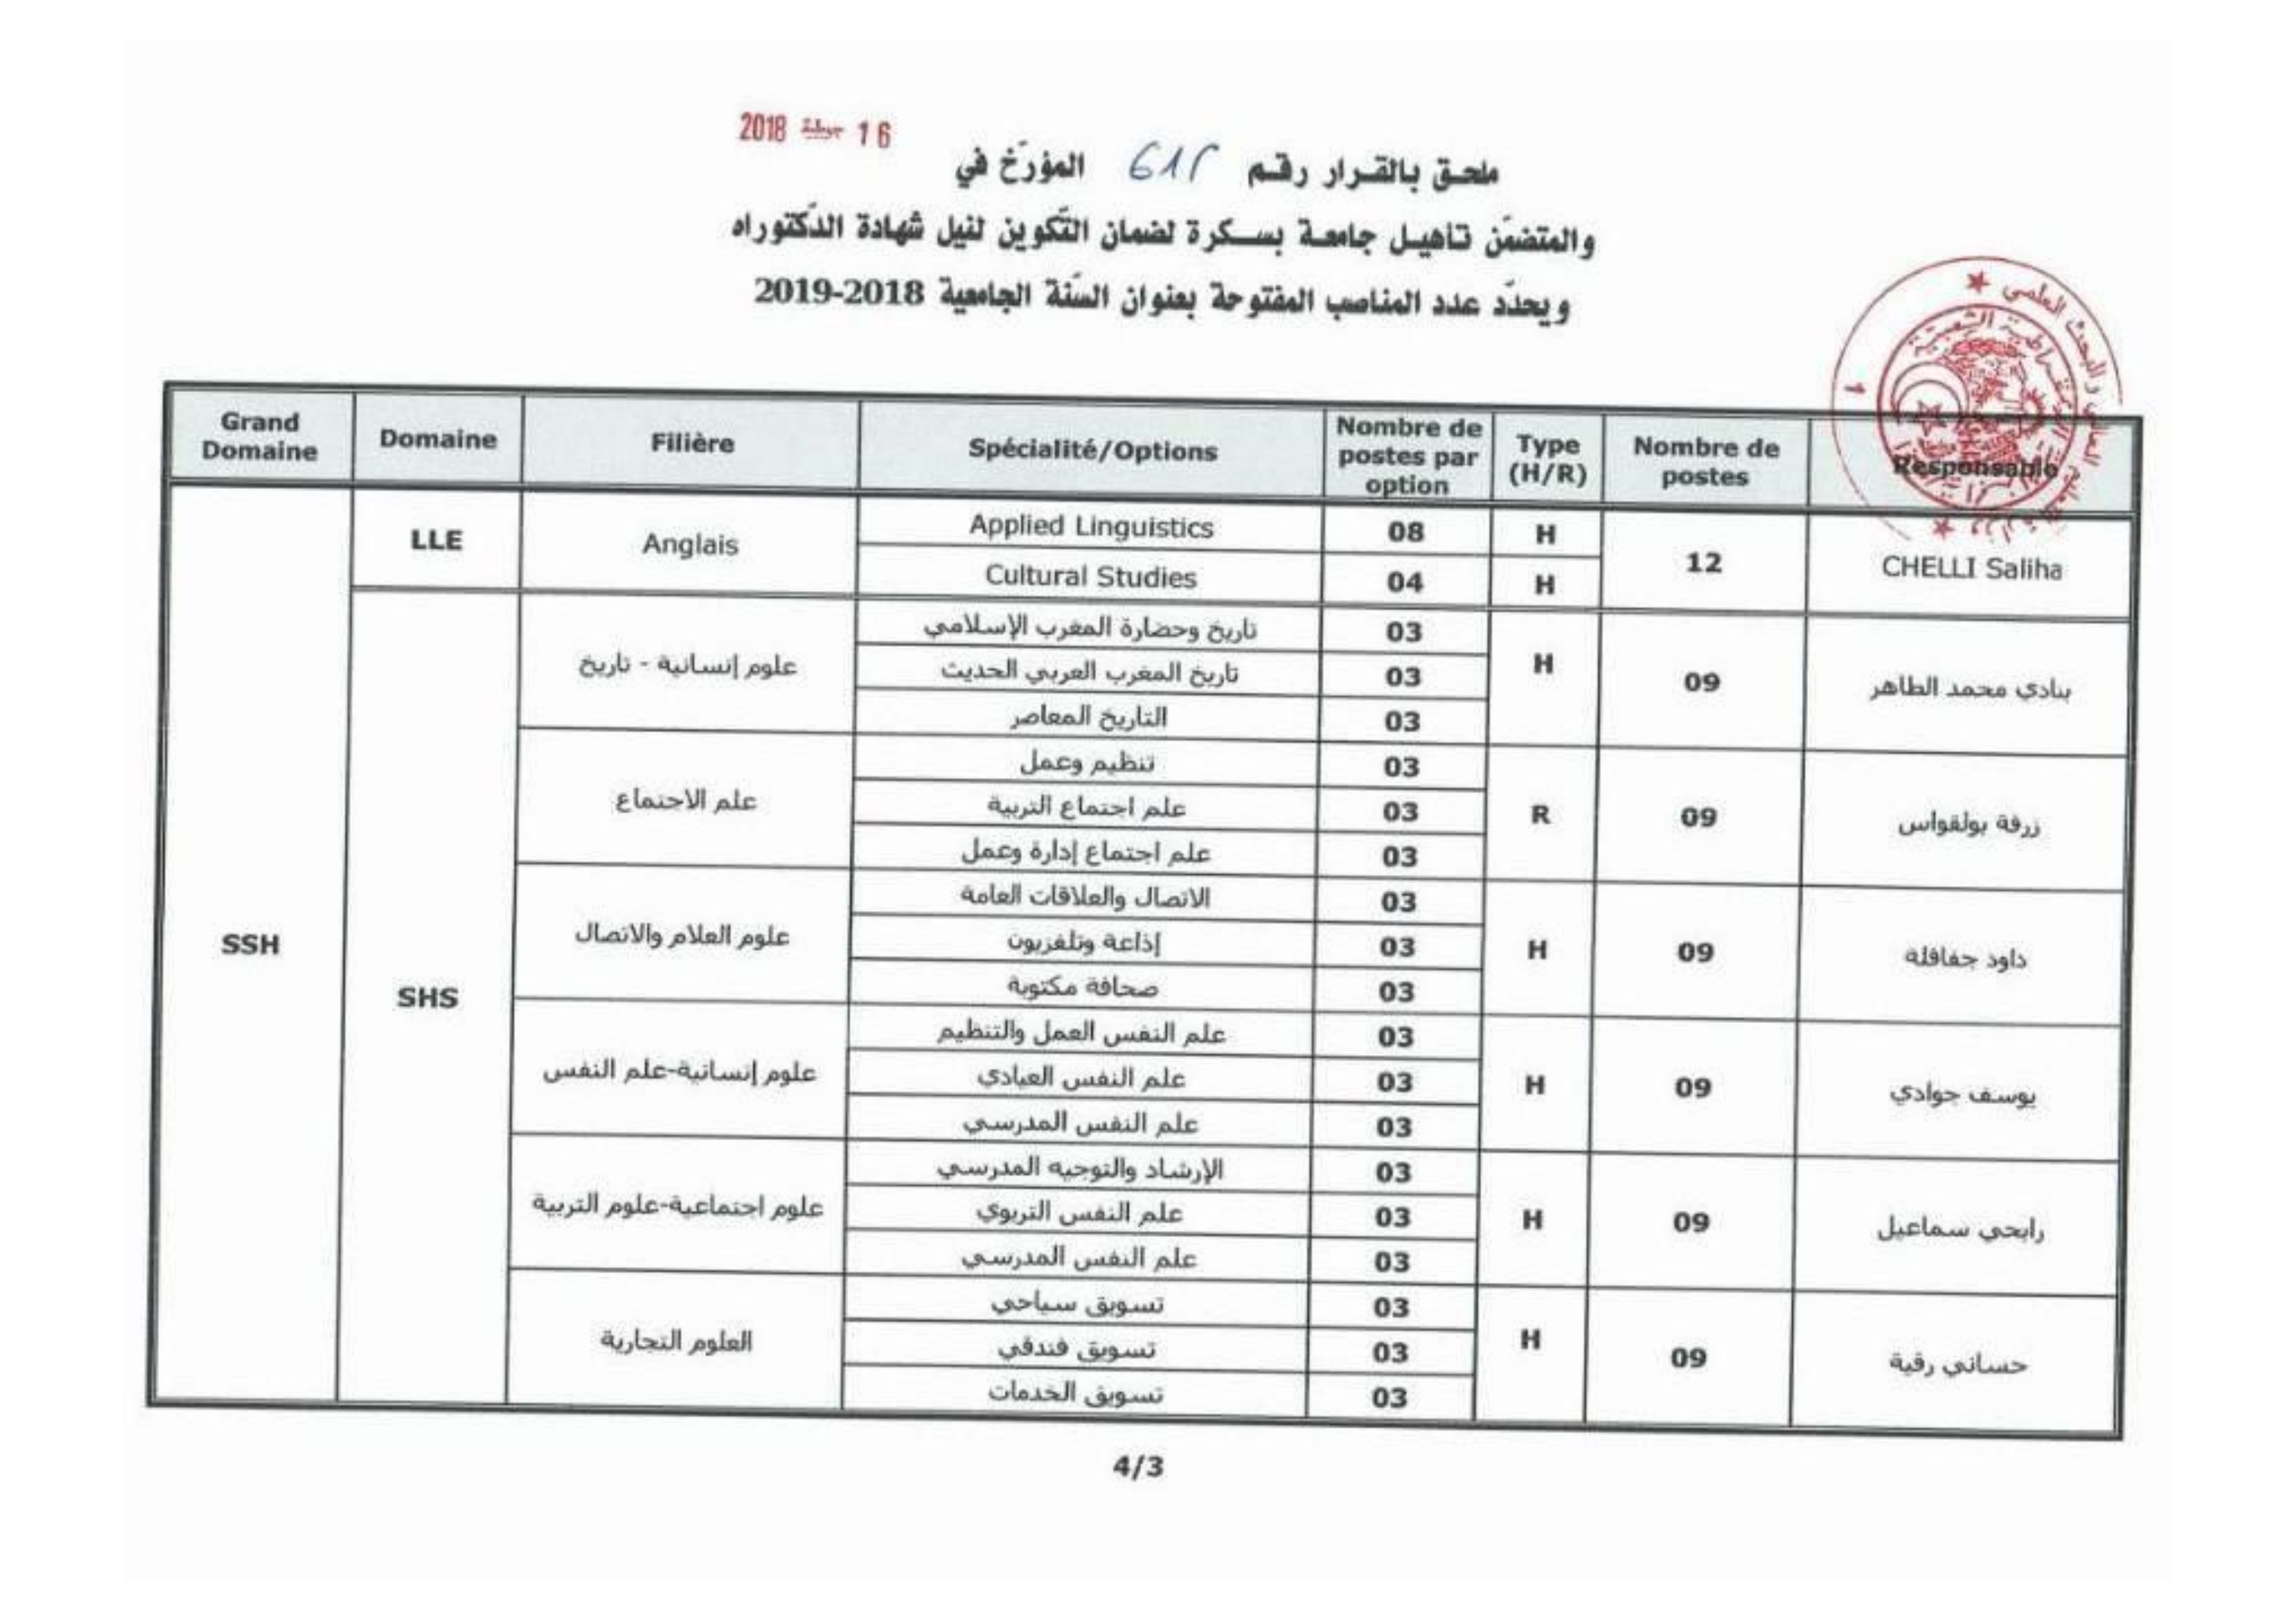 2018 جويلية 16
ملحق بالقرار رقم المؤرّخ في
والمتضمّن تأهيل جامعة بسكرة لضمان التّكوين لنيل شهادة الدّكتوراه
ويحدّد عدد المناصب المفتوحة بعنوان السّنة الجامعية 2018-2019
Grand Domaine Domaine Filière Spécialité/Options Nombre de postes par option Type (H/R) Nombre de postes Responsable
SSH
LLE Anglais Applied Linguistics 08 H 12 CHELLI Saliha
Cultural Studies 04 H
SHS
علوم إنسانية - تاريخ تاريخ وحضارة المغرب الإسلامي 03 H 09 بنادي محمد الطاهر
تاريخ المغرب العربي الحديث 03
التاريخ المعاصر 03
علم الاجتماع تنظيم وعمل 03 R 09 زرفة بولقواس
علم اجتماع التربية 03
علم اجتماع إدارة وعمل 03
علوم العلام والاتصال الاتصال والعلاقات العامة 03 H 09 داود جفافلة
إذاعة وتلفزيون 03
صحافة مكتوبة 03
علوم إنسانية-علم النفس علم النفس العمل والتنظيم 03 H 09 يوسف جوادي
علم النفس العيادي 03
علم النفس المدرسي 03
علوم اجتماعية-علوم التربية الإرشاد والتوجيه المدرسي 03 H 09 رابحي سماعيل
علم النفس التربوي 03
علم النفس المدرسي 03
العلوم التجارية تسويق سياحي 03 H 09 حساني رقية
تسويق فندقي 03
تسويق الخدمات 03
4/3